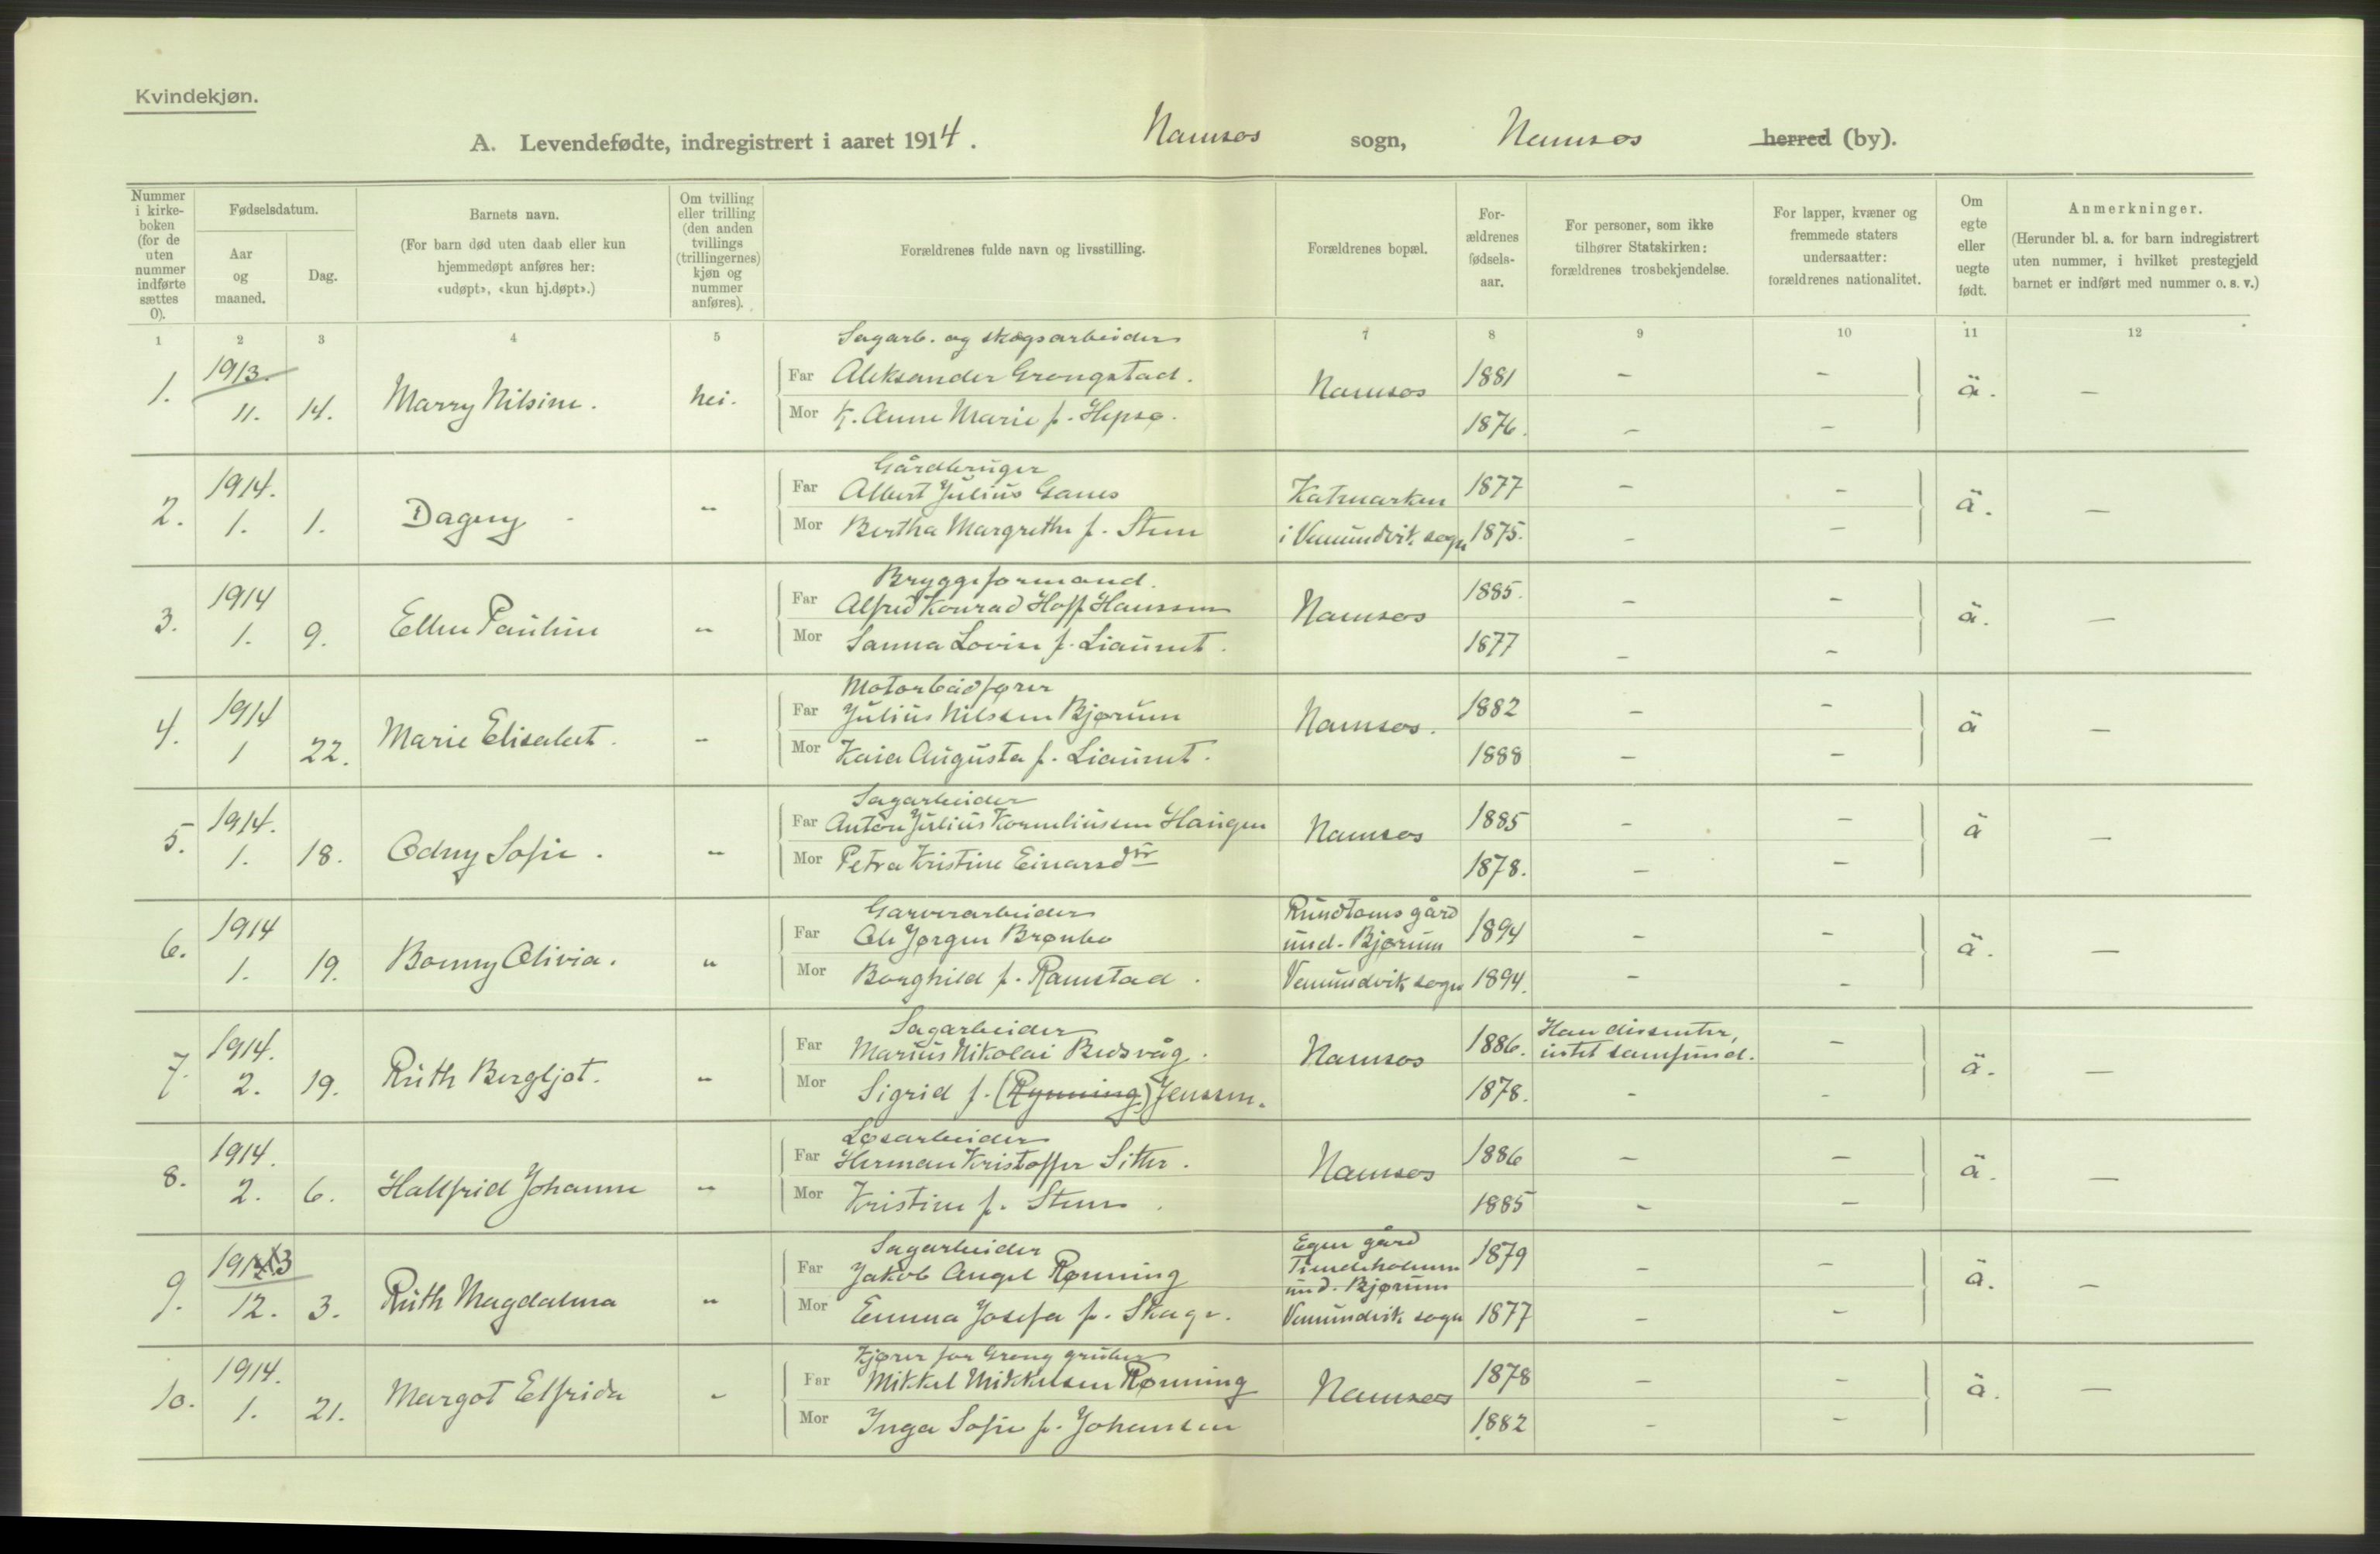 Kvindekjøn.
A. Levendefødte, indregistrert i aaret 1914. Namsos sogn, Namsos herred (by).
Nummer i kirke-boken (for de uten nummer indførte sættes 0).
Fødselsdatum.
Aar og maaned.
Dag.
Barnets navn.
(For barn død uten daab eller kun hjemmedøpt anføres her: «udøpt», «kun hj.døpt».)
Om tvilling eller trilling (den anden tvillings (trillingernes) kjøn og nummer anføres).
Forældrenes fulde navn og livsstilling.
Forældrenes bopæl.
For-ældrenes fødsels-aar.
For personer, som ikke tilhører Statskirken: forældrenes trosbekjendelse.
For lapper, kvæner og fremmede staters undersaatter: forældrenes nationalitet.
Om egte eller uegte født.
Anmerkninger.
(Herunder bl. a. for barn indregistrert uten nummer, i hvilket prestegjeld barnet er indført med nummer o. s. v.)
1 2 3 4 5 7 8 9 10 11 12
Sagarb. og skogsarbeider
1. 1913. 11. 14. Marry Nilsine. nei.
Far Aleksander Grongstad. Namsos 1881 - - ä. -
Mor K. Anne Marie f. Hepsø. 1876. - -
Gårdbruger
2. 1914. 1. 1. Dagny - "
Far Albert Julius Ganes Katmarken 1877 - - ä. -
Mor Bertha Margrethe f. Stene i Vemundvik sogn 1875. - -
Bryggeformand.
3. 1914 1. 9. Ellen Pauline "
Far Alfred Konrad Hoff Hanssen Namsos 1885. - - ä. -
Mor Sanna Lovise f. Liaunet. 1877 - -
Motorbådfører
4. 1914 1 22. Marie Elisabet. "
Far Julius Nilssen Bjørum Namsos. 1882 - - ä -
Mor Kaia Augusta f. Liaunet. 1888 - -
Sagarbeider
5. 1914. 1. 18. Odny Sofie. "
Far Anton Julius Korneliussen Haugen Namsos 1885 - - ä -
Mor Petra Kristine Einarsdtr 1878. - -
Garverarbeider
6. 1914 1. 19. Bonny Olivia. "
Far Ole Jørgen Brønbo Rundtoms gård und. Bjørum 1894 - - ä. -
Mor Borghild f. Ramstad. Vemundvik sogn 1894. - -
Sagarbeider
7. 1914. 2. 19. Ruth Bergljot. "
Far Marius Nikolai Budsvåg. Namsos 1886. Han dissenter, intet samfund. - ä. -
Mor Sigrid f. (Rynning) Jenssen. 1878. - -
Løsarbeider
8. 1914. 2. 6. Hallfrid Johanne "
Far Herman Kristoffer Sitter. Namsos 1886 - - ä. -
Mor Kristine f. Stene. 1885 - -
Sagarbeider
9. 1913 12. 3. Ruth Magdalena "
Far Jakob Angel Rønning Egen gård und. Bjørum 1879 - - ä. -
Mor Emma Josefa f. Skage. Vemundvik sogn 1877 - -
Kjører for Grong gruber
10. 1914. 1. 21. Margot Elfrida "
Far Mikkel Mikkelsen Rønning Namsos 1878 - - ä. -
Mor Inga Sofie f. Johansen 1882 - -